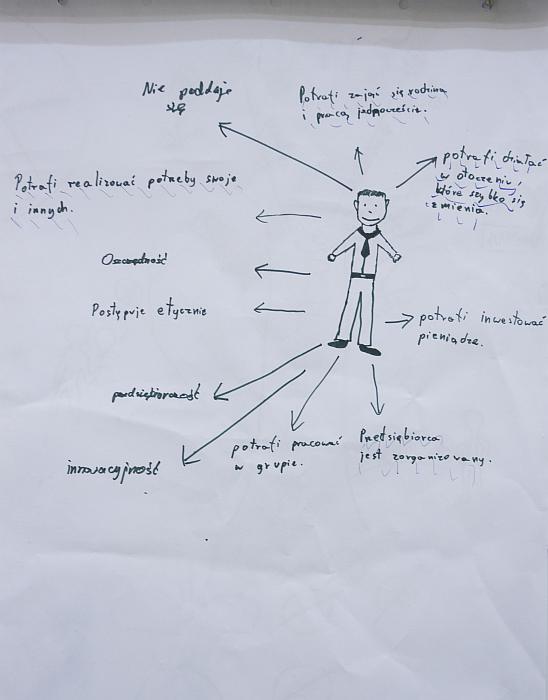 Nie poddaje
się
Potrafi zająć się rodziną
i pracą jednocześnie.
potrafi działać
w otoczeniu,
które szybko się
zmienia.
Potrafi realizować potrzeby swoje
i innych.
Oszczędność
Postępuje etycznie
potrafi inwestować
pieniądze.
przedsiębiorczość
potrafi pracować
w grupie.
Przedsiębiorca
jest zorganizowany.
innowacyjność